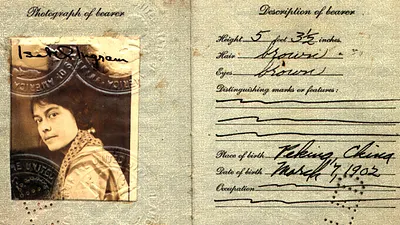 Photograph of bearer
Description of bearer
Height 5 feet 3½ inches.
Hair brown
Eyes brown
Distinguishing marks or features:
Place of birth Peking, China
Date of birth March 7, 1902
Occupation
THE UNITED